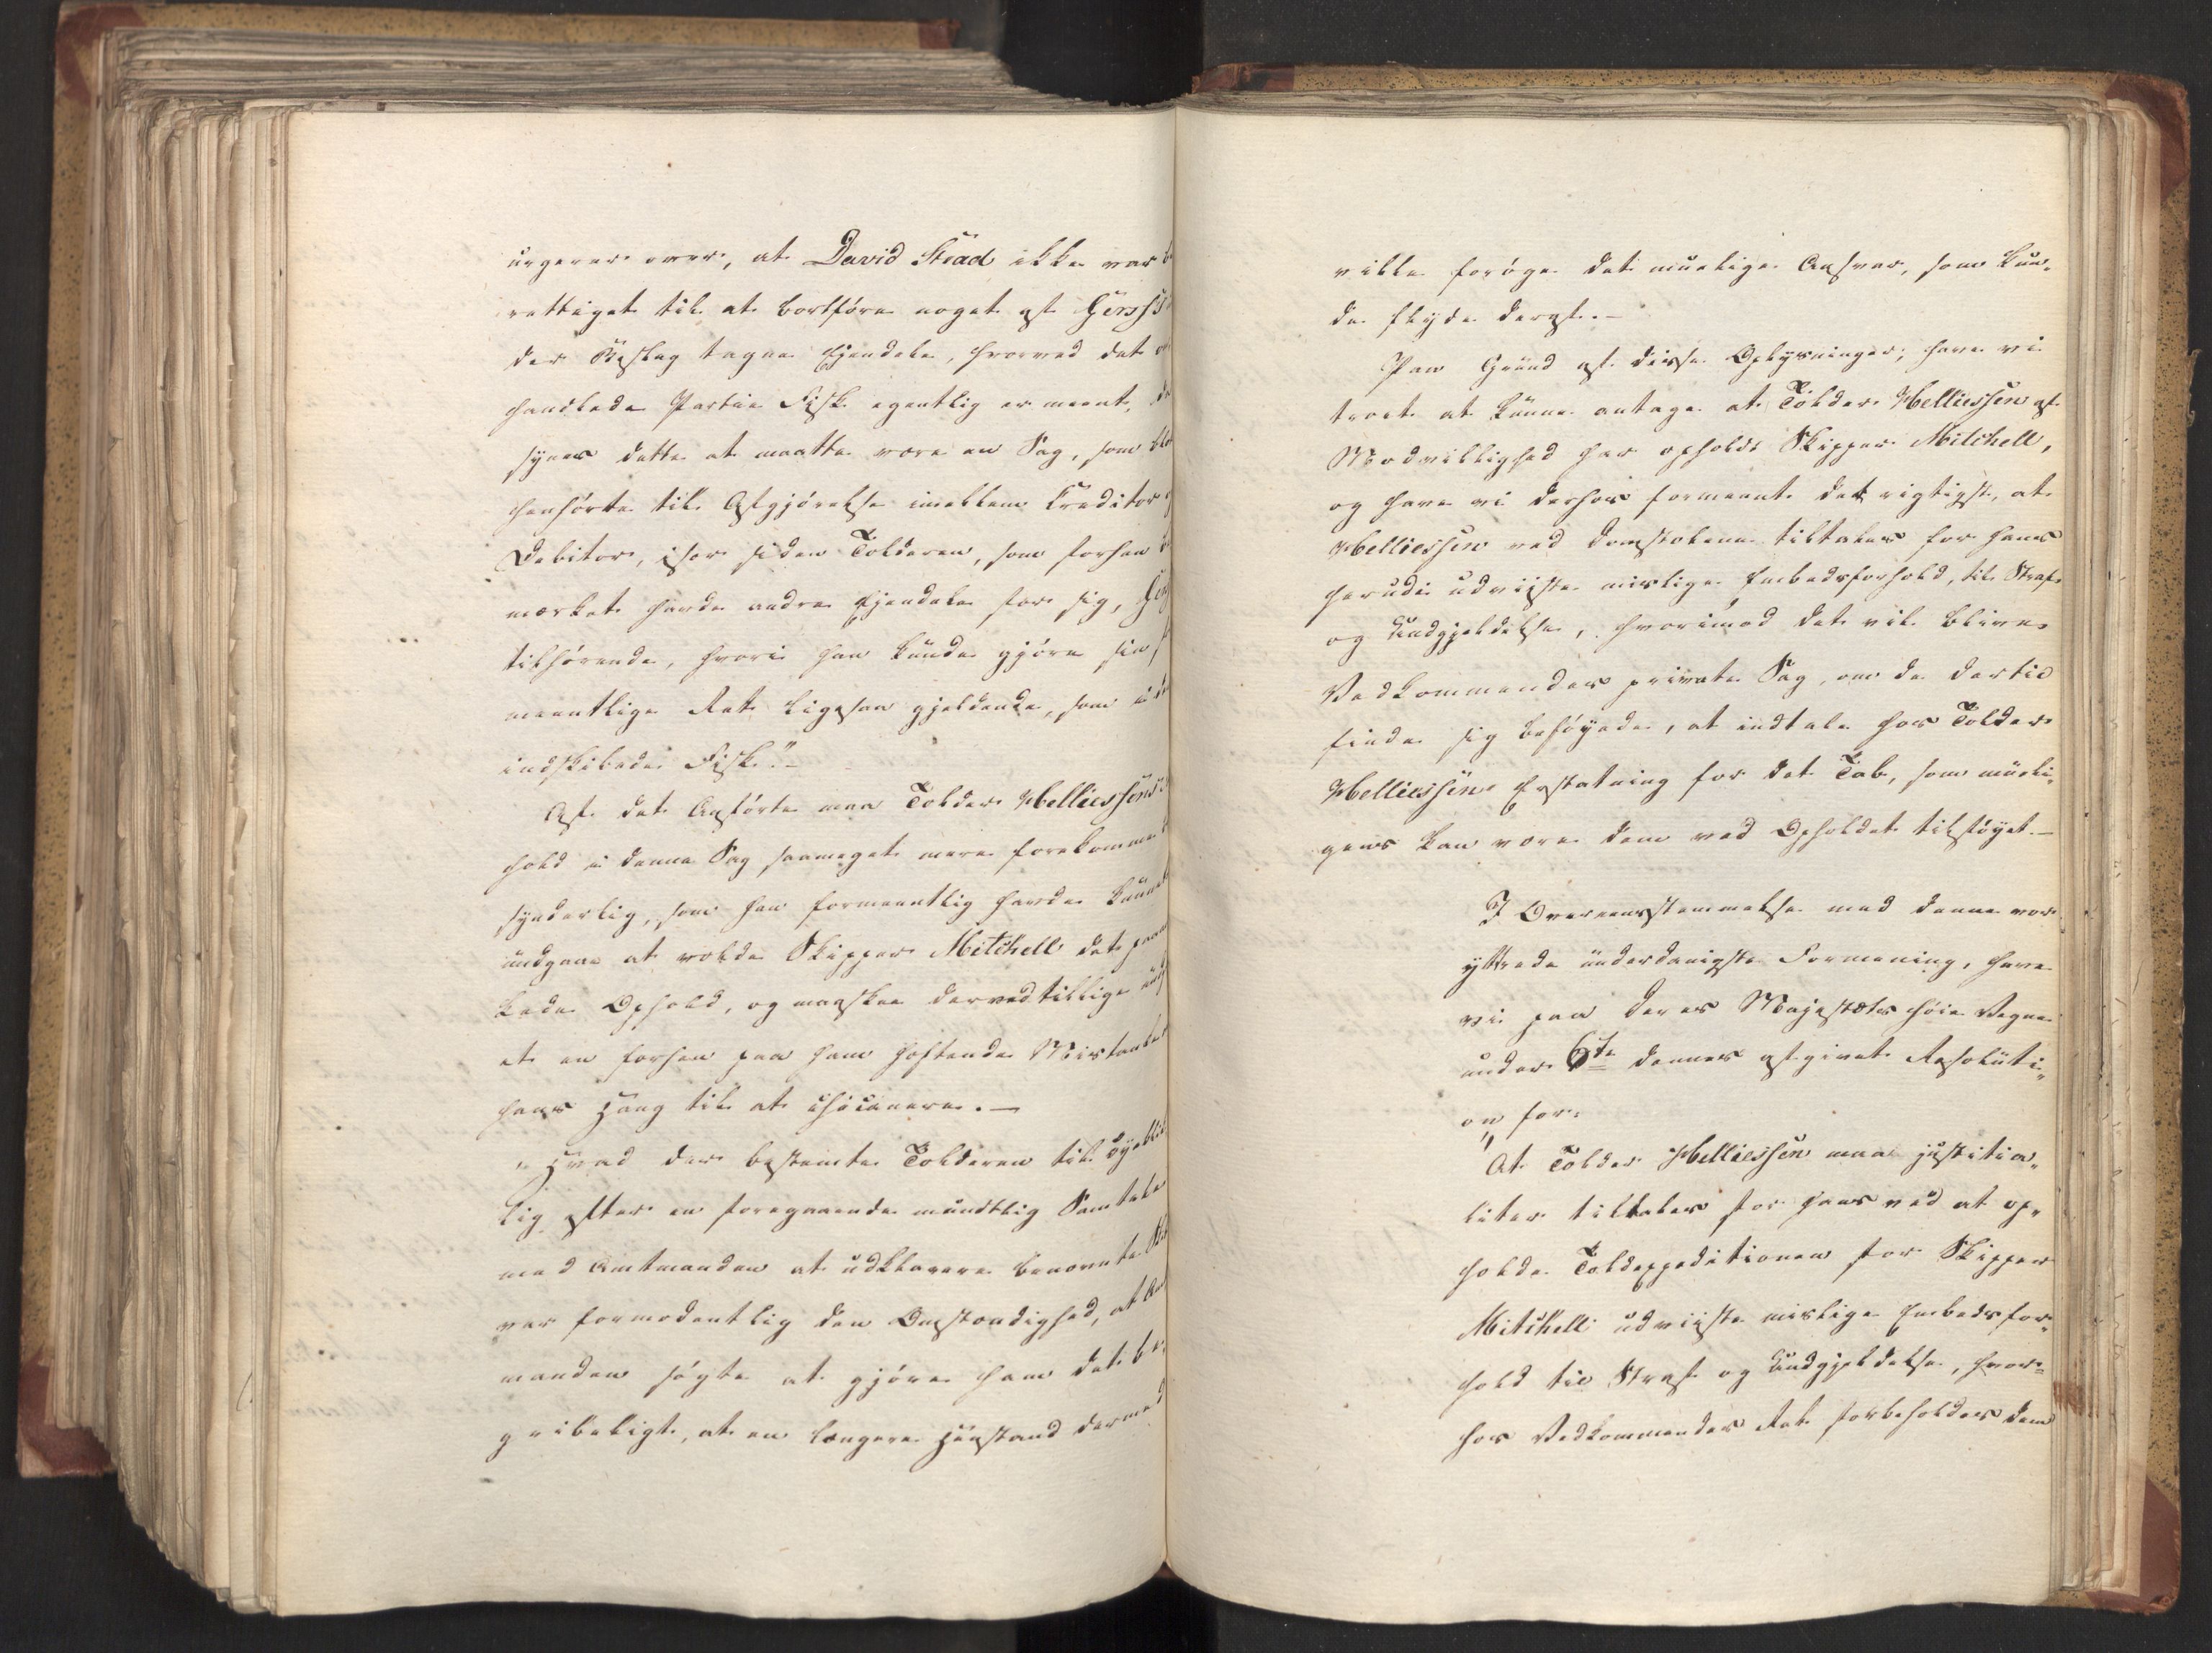 urgerer over, at David Stead ikke var
rettiget til at bortføre noget af
der Beslag tagne Ejendele, hvorved det
handlede Partie Fisk egentlig er meent,
synes dette at maatte være en Sag, som
henhørte til Afgjørelse imellem Creditor
Debitor, især siden Tolderen, som forhen
mærket havde andre Ejendele for sig,
tilhørende, hvori han kunde gjøre sin
meentlige Ret ligesaa gjeldende, som i
indskibede Fisk."–
Af det Anførte maa Tolder Helliessens
hold i denne Sag saameget mere forekomme
synderlig, som han formeentlig havde kunnet
undgaae at volde Skipper Mitchell det
kede Ophold, og maaskee derved tillige
et en forhen paa ham heftende Mistanke
hans Hang til at chicanere. —
"Hvad der bestemte Tolderen til øyeblik
lig efter en foregaaende mundtlig Samtale
med Amtmanden at udklarere benævnte
var formodentlig den Omstændighed, at
manden søgte at gjøre ham det be
gribeligt, at en længere Henstand dermed
ville forøge det muelige Ansvar, som kun„
de flyde deraf. –
Paa Grund af disse Oplysninger, have vi
troet at kunne antage at Tolder Helliessen af
Modvillighed har opholdt Skipper Mitchell,
og have vi derhos formeent det rigtigst, at
Helliessen ved Domstolene tiltales for hans
herudi udviiste mislige Embedsforhold, til Straf
og Undgjeldelse, hvorimod det vil blive
Vedkommendes private Sag, om de dertil
finde sig beføyede, at indtale hos Tolder
Helliessen Erstatning for det Tab, som mueli„
gens kan være dem ved Opholdet tilføyet. —
I Overeensstemmelse med denne vor
yttrede underdanigste Formening, have
vi paa Deres Majestæts høie Vegne
under 6te dennes afgivet Resoluti„
on for:
"At Tolder Helliessen maa justitia„
liter tiltales for hans ved at op„
holde Toldexpeditionen for Skipper
Mitchell udviiste mislige Embedsfor„
hold til Straf og Undgjeldelse, hvor„
hos Vedkommendes Ret forbeholdes dem